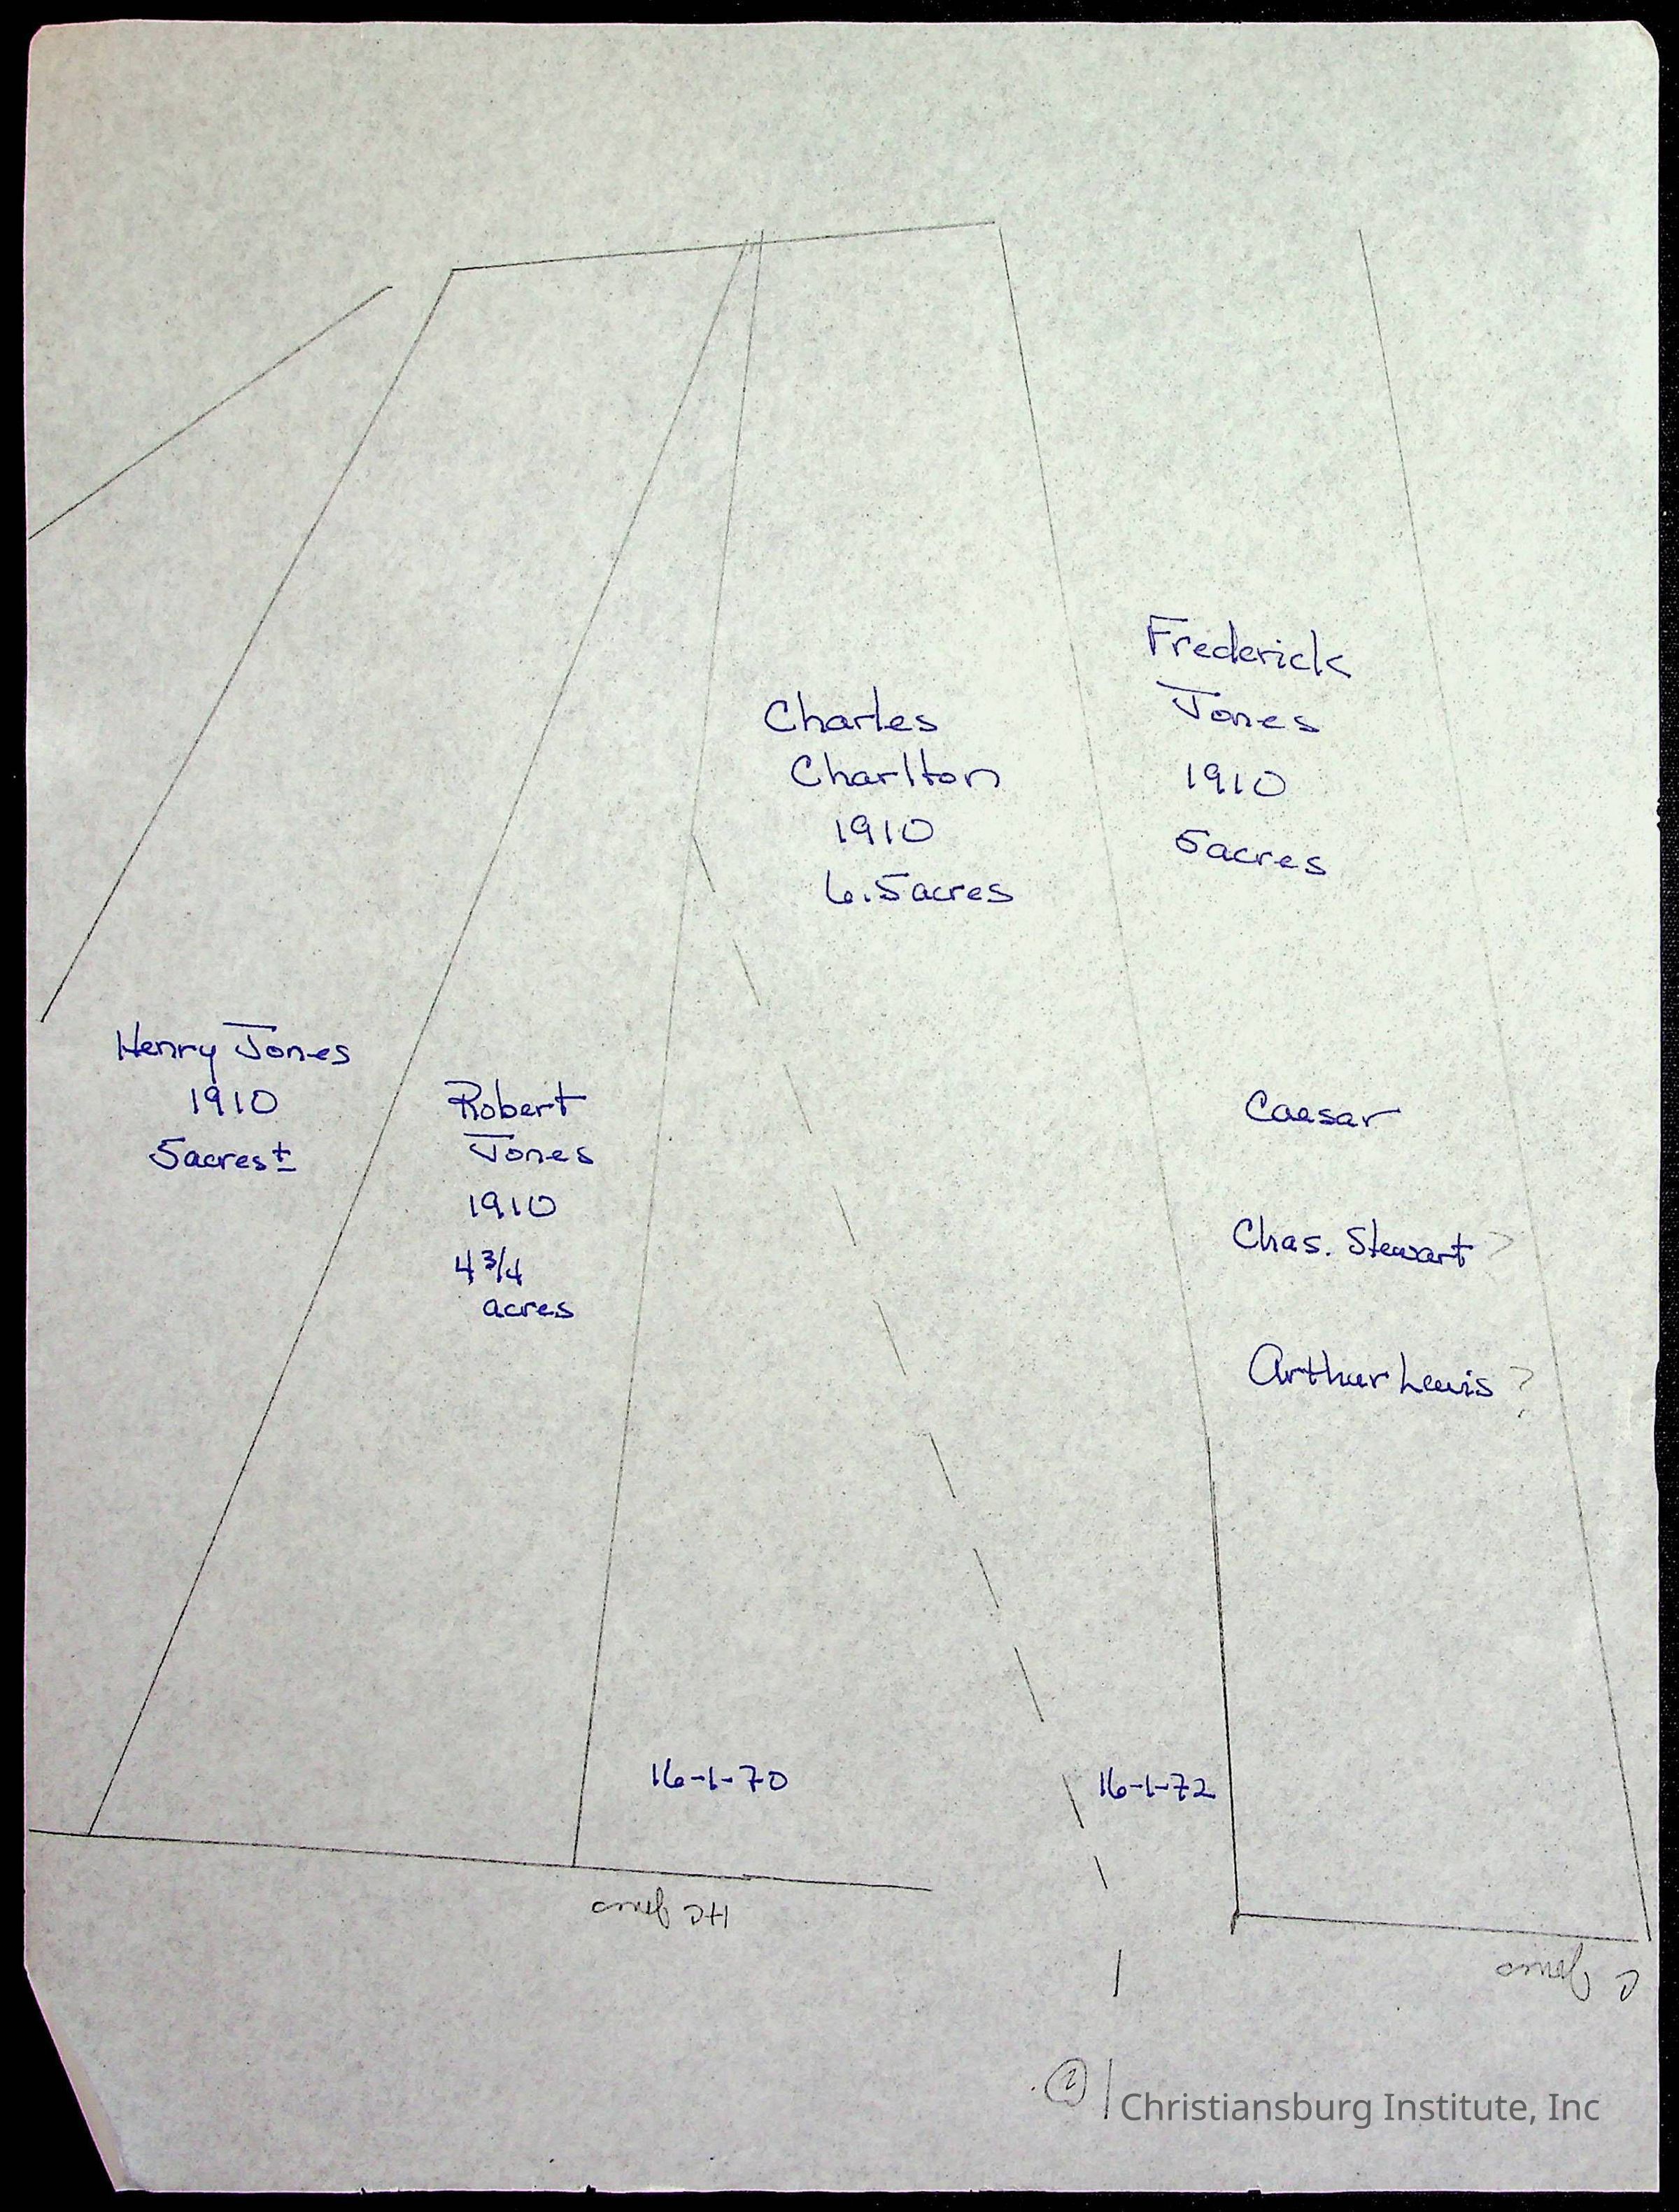 Frederick
Jones
1910
5acres
Charles
Charlton
1910
6.5acres
Henry Jones
1910
5acres±
Robert
Jones
1910
4 3/4
acres
Caesar
Chas. Stewart ?
Arthur Lewis ?
16-1-70
16-1-72
HC Jones
C Jones
2
Christiansburg Institute, Inc